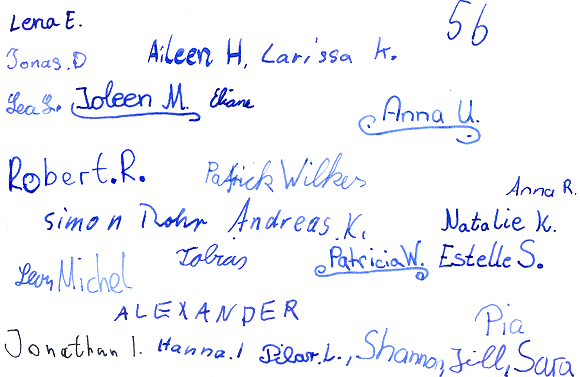 Lena E.
56
Jonas.D
Aileen H, Larissa K.
Lea L. Joleen M. Eliane
Anna U.
Robert.R.
Patrick Wilkes
Anna R.
simon Rohr Andreas.K.
Natalie K.
Tobias
Patricia W. Estelle S.
Leon Michel
ALEXANDER
Pia
Jonathan I. Hanna.I Pilar.L., Shannon, Jill, Sara